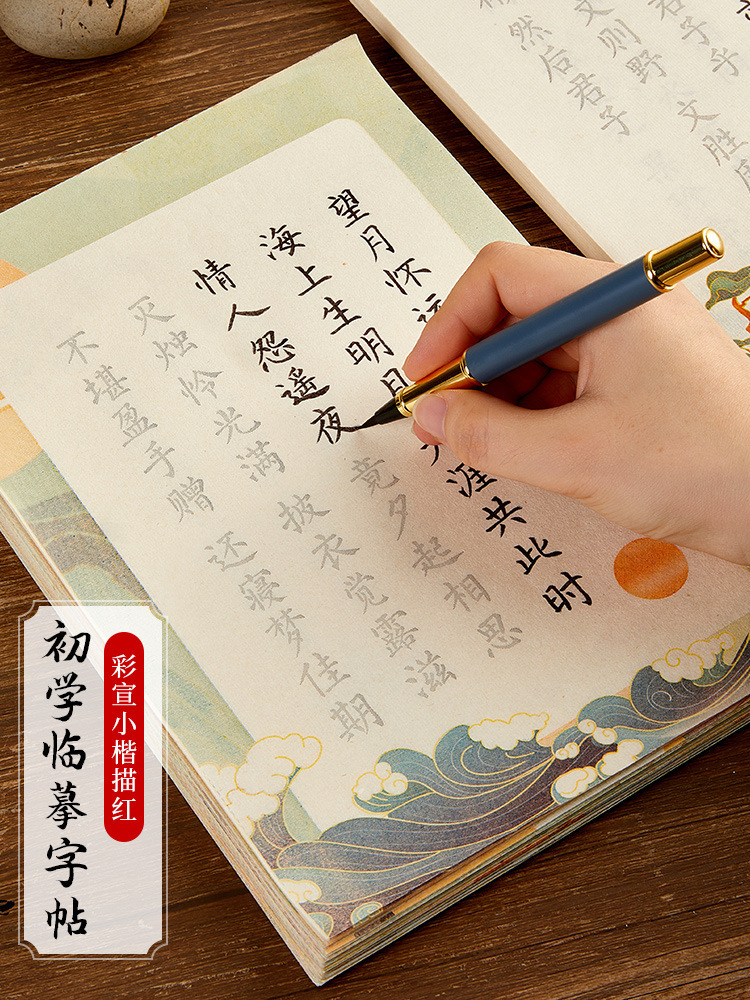 望月怀远
海上生明月 天涯共此时
情人怨遥夜 竟夕起相思
灭烛怜光满 披衣觉露滋
不堪盈手赠 还寝梦佳期
君子乎 文胜
文则野
然后君子
彩宣小楷描红
初学临摹字帖